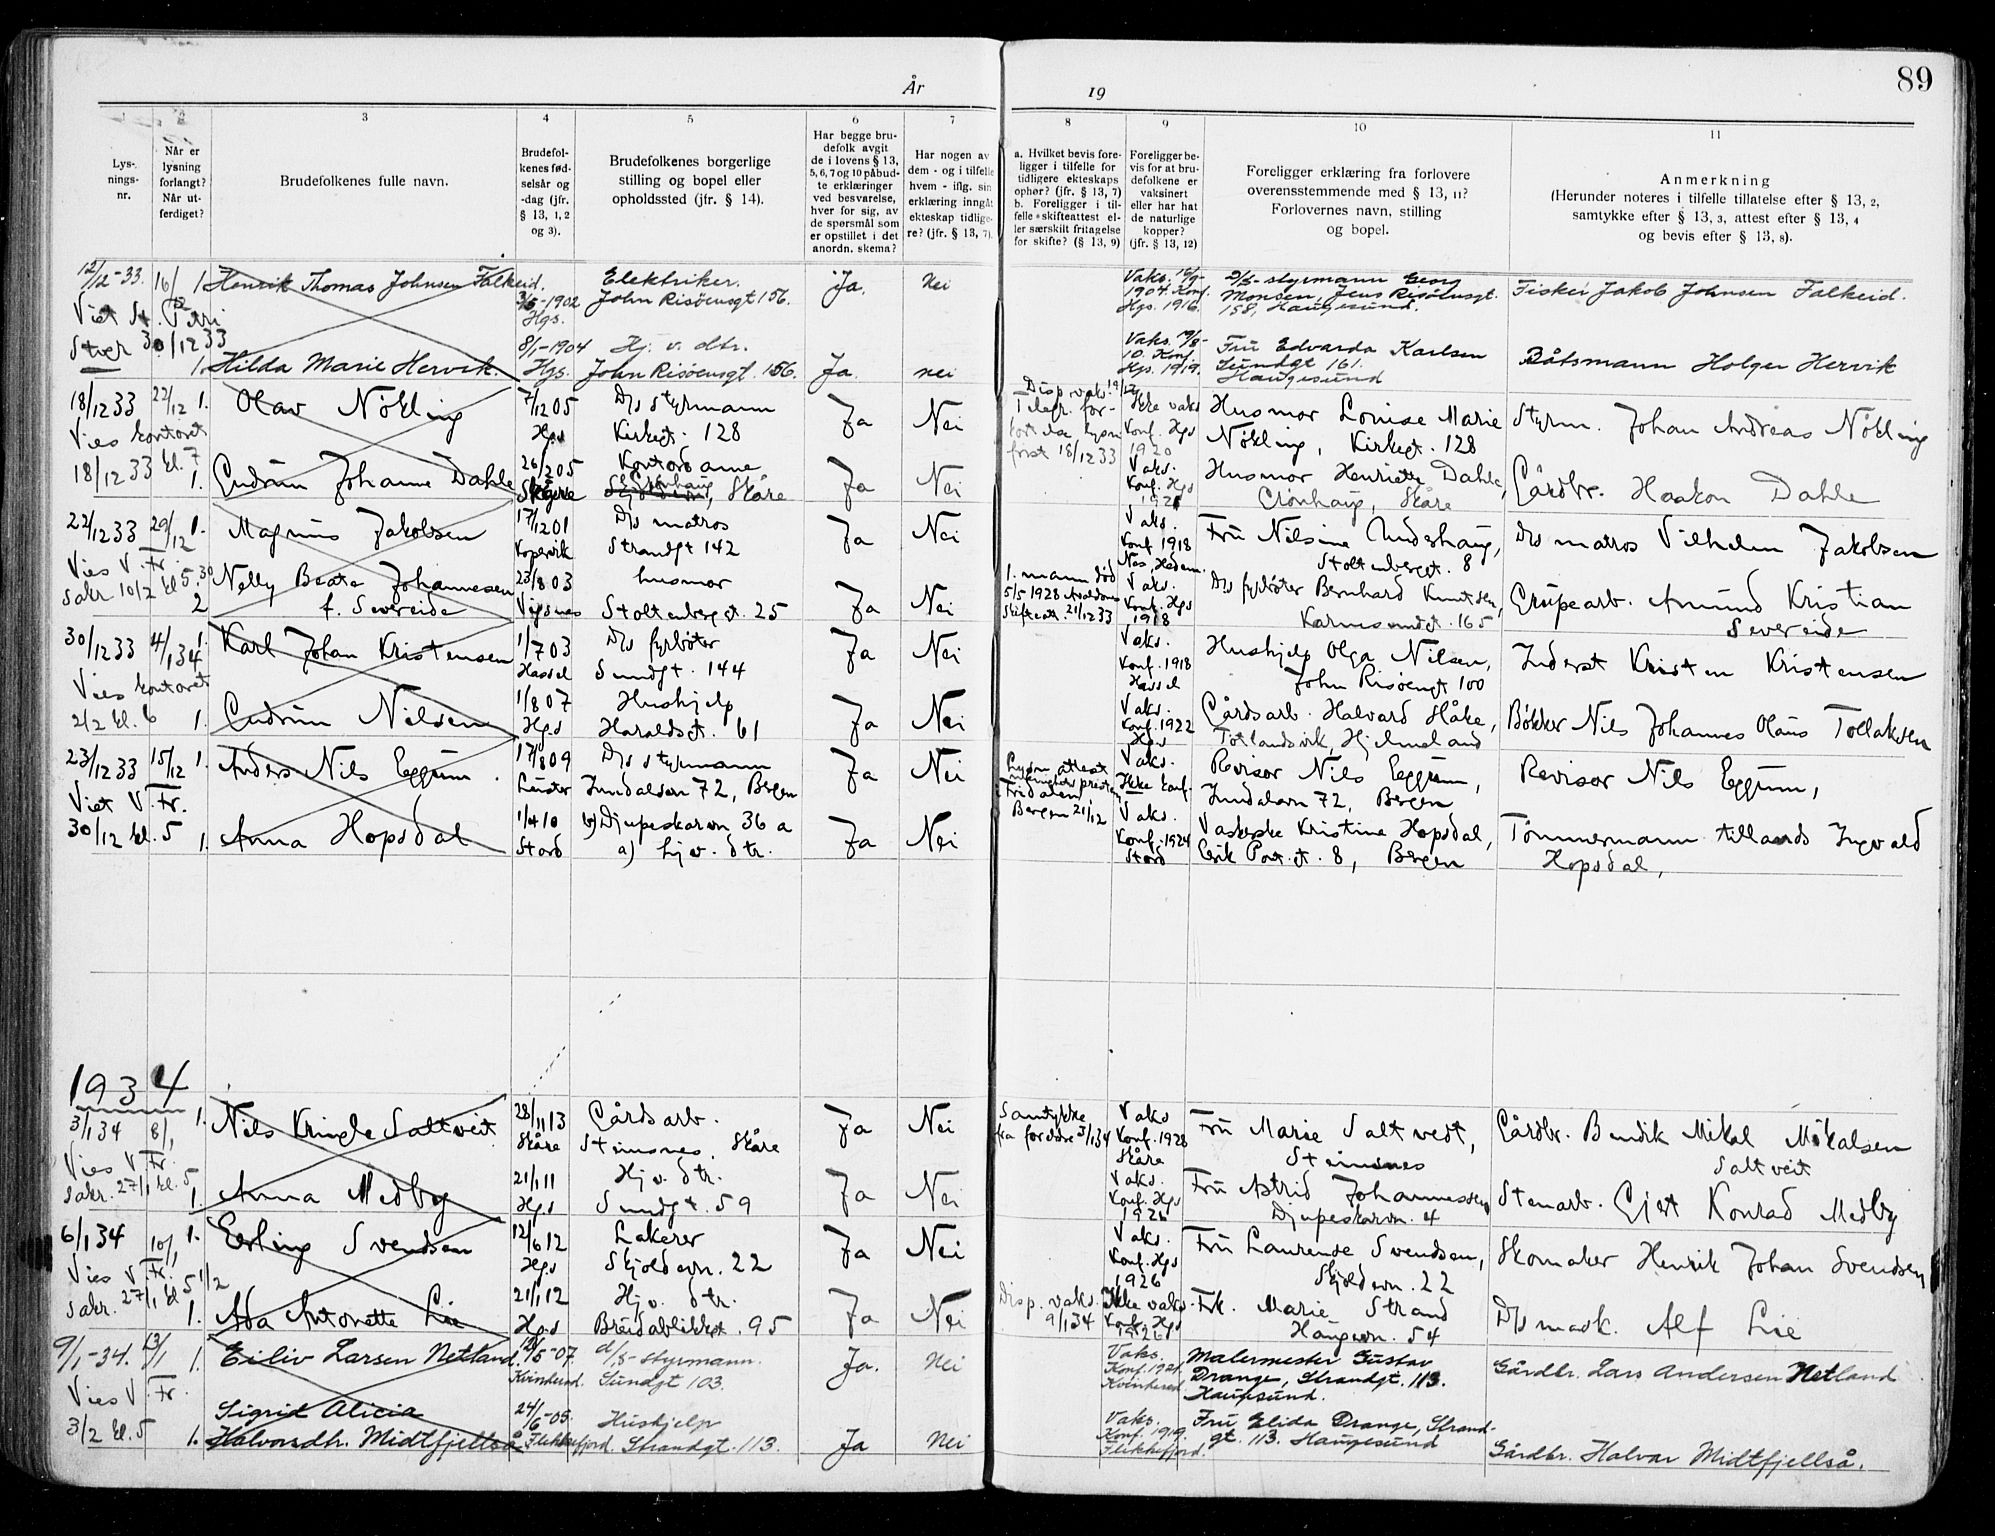 År 19
89
1 2 3 4 5 6 7 8 9 10 11
Lys-
nings-
nr.
Når er
lysning
forlangt?
Når ut-
ferdiget?
Brudefolkenes fulle navn.
Brudefol-
kenes fød-
selsår og
-dag (jfr.
§ 13, 1, 2
og 3).
Brudefolkenes borgerlige
stilling og bopel eller
opholdssted (jfr. § 14).
Har begge bru-
defolk avgit
de i lovens § 13,
5, 6, 7 og 10 påbud-
te erklæringer
ved besvarelse,
hver for sig, av
de spørsmål som
er opstillet i det
anordn. skema?
Har nogen av
dem - og i tilfelle
hvem - iflg. sin
erklæring inngåt
ekteskap tidlige-
re? (jfr. § 13, 7).
a. Hvilket bevis fore-
ligger i tilfelle for
tidligere ekteskaps
ophør? (jfr. § 13, 7)
b. Foreligger i til-
felle skifteattest el-
ler særskilt fritagelse
for skifte? (§ 13, 9)
Foreligger be-
vis for at bru-
defolkene er
vaksinert
eller har hat
de naturlige
kopper?
(jfr. § 13, 12)
Foreligger erklæring fra forlovere
overensstemmende med § 13, 11?
Forlovernes navn, stilling
og bopel.
Anmerkning
(Herunder noteres i tilfelle tillatelse efter § 13, 2,
samtykke efter § 13, 3, attest efter § 13, 4
og bevis efter § 13, 8).
12/12-33. 16/12 1. Henrik Thomas Johnsen Falkeid. 3/5-1902 Hgs. Elektriker. John Risøensgt 156. Ja. Nei
Vaks. 16/9-1904. Konf. Hgs. 1916. D/s-styrmann Georg Monsen, Jens Risøensgt. 158, Haugesund. Fisker Jakob Johnsen Falkeid.
Viet St. Petri
30/12 33
1. Hilda Marie Hervik. 8/1-1904 Hgs. Hj. v. dtr. John Risøensgt. 156. Ja. nei
Vaks. 19/8-10. Konf. Hgs. 1919. Fru Edvarda Karlsen Sundgt 161. Haugesund Båtsmann Holger Hervik
18/12 33 22/12 1. Olav Nökling 7/12 05 Hgs D/s styrmann Kirkegt. 128 Ja Nei
Disp. vaks. 19/12 Telegr. for- 18/12 33 Ikke vaks Konf. Hgs 1920 Husmor Louise Marie Nökling, Kirkegt. 128 Styrm. Johan Andreas Nökling
Vies kontoret
18/12 33 kl. 7 1. Gudrun Johanne Dahle 26/2 05 Kontordame Grönhaug, Skåre Ja Nei
Vaks. Konf. Hgs Husmor Henriette Dahle, Grönhaug, Skåre Gårdbr. Haakon Dahle
22/12 33 29/12 1. Magnus Jakobsen 17/12 01 Kopervik D/s matros Strandgt 142 Ja Nei
Vaks. Konf. 1918 Fru Nilsine Underhaug, Stoltenberggt. 8 D/s matros Vilhelm Jakobsen
Vies V. Fr.
sakr. 10/2 kl 5.30 2 Nelly Beate Johannesen f. Severeide 23/8 03 Vigsnes husmor Stoltenberggt. 25 Ja Nei
1. mann död 5/5 1928 Skifteatt. 21/12 33 Vaks. Konf. Hgs 1918 D/s fyrböter Bernhard Knutsen, Karmsundgt. 165 Grubearb. Amund Kristian Severeide
30/12 33 4/1 34 1. Karl Johan Kristensen 1/7 03 Hassel D/s fyrböter Sundgt. 144 Ja Nei
Vaks. Konf. 1918 Hassel Hushjelp Olga Nilsen, John Risöensgt 100 Inderst Kristen Kristensen
Vies kontoret
2/2 kl. 6 1. Gudrun Nilsen 1/8 07 Hgs Hushjelp Haraldsgt. 61 Ja Nei
Vaks. Konf. 1922 Hgs Gårdsarb. Halvard Håke, Totlandsvik, Hjelmeland Bökker Nils Johannes Olaus Tollaksen
23/12 33 15/12 1. Anders Nils Eggum. 17/8 09 Luster D/s styrmann Lundalsvn 72, Bergen Ja Nei
Lysn. attest Fridalen, Bergen 21/12 Vaks. Ikke konf. Revisor Nils Eggum, Lundalsvn 72, Bergen Revisor Nils Eggum,
Viet V. Fr.
30/12 kl. 5 1. Anna Hopsdal 1/4 10 Stord b) Djupeskarvn. 36 a a) hj v. dtr. Ja Nei
Vaks. Konf. 1924 Stord Kristine Hopsdal, 8, Bergen Tömmermann Ingvald Hopsdal,
1934
3/1 34 8/1 1. Nils Kringle Saltveit 28/11 13 Skåre Gårdsarb. Steinsnes, Skåre Ja Nei
Samtykke fra foreldre 3/1 34 Vaks Konf. 1928 Skåre Fru Marie Saltvedt, Steinsnes Gårdbr. Bendik Mikal Mikalsen Saltveit
Vies V. Fr.
sakr. 27/1 kl. 5 1. Anna Medby 21/1 11 Hgs Hj v. dtr. Sundgt. 59 Ja Nei
Vaks. Konf. Hgs 1926 Fru Astrid Johannessen Djupeskarvn. 4 Stenarb. Gjert Konrad Medby
6/1 34 10/1 1. Erling Svendsen 12/6 12 Hgs Lakerer Skjoldavn. 22 Ja Nei
Vaks. Konf. Hgs 1926 Fru Laurense Svendsen, Skjoldavn. 22 Skomaker Henrik Johan Svendsen
Vies V. Fr.
sakr. 27/1 kl 5 1/2 1. Ada Antonette Lie 21/1 12 Hgs Hj v. dtr. Breidablikkgt. 95 Ja Nei
Disp. vaks. 9/1 34 Ikke vaks. Konf. Hgs 1926 Frk. Marie Strand Haugevn. 54 D/s mask. Alf Lie
9/1-34. 13/1 1. Eiliv Larsen Netland. 12/5-07. Kvinherad. d/s-styrmann. Sundgt 103. Ja. nei
Vaks. Konf. 1921. Kvinherad Malermester Gustav Drange, Strandgt. 113. Haugesund. Gårdbr. Lars Andersen Netland
Vies V. Fr.
3/2 kl. 5 1. Sigrid Alicia Halvorsdtr. Midtfjellså 24/6-05. Flekkefjord. Hushjelp Strandgt. 113. Ja Nei
Vaks. Konf. 1919. Flekkefjord. Fru Elida Drange, Strand- gt. 113. Haugesund Gårdbr. Halvar Midtfjellså.